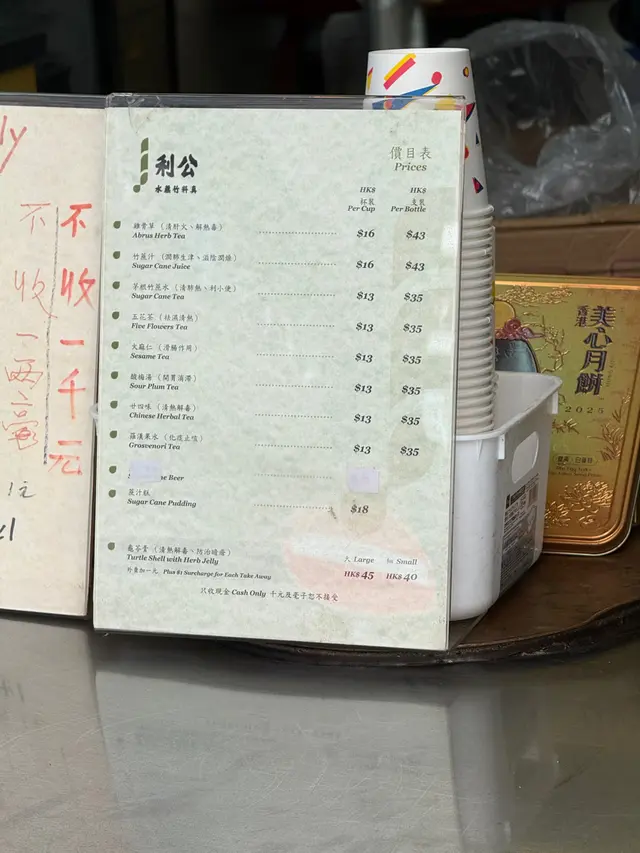 ly
不收
一兩毫
不收一千元
利公
真料竹蔗水
價目表
Prices
HK$ HK$
杯裝 支裝
Per Cup Per Bottle
雞骨草（清肝火、解熱毒）
Abrus Herb Tea $16 $43
竹蔗汁（潤肺生津、滋陰潤燥）
Sugar Cane Juice $16 $43
茅根竹蔗水（清肺熱、利小便）
Sugar Cane Tea $13 $35
五花茶（祛濕清熱）
Five Flowers Tea $13 $35
火麻仁（滑腸作用）
Sesame Tea $13 $35
酸梅湯（開胃消滯）
Sour Plum Tea $13 $35
廿四味（清熱解毒）
Chinese Herbal Tea $13 $35
羅漢果水（化痰止咳）
Grosvenori Tea $13 $35
Beer
蔗汁糕
Sugar Cane Pudding $18
龜苓膏（清熱解毒、防治暗瘡） 大 Large 細 Small
Turtle Shell with Herb Jelly HK$ 45 HK$ 40
外賣加一元 Plus $1 Surcharge for Each Take Away
只收現金 Cash Only 千元及毫子恕不接受
香港
美心月餅
2025